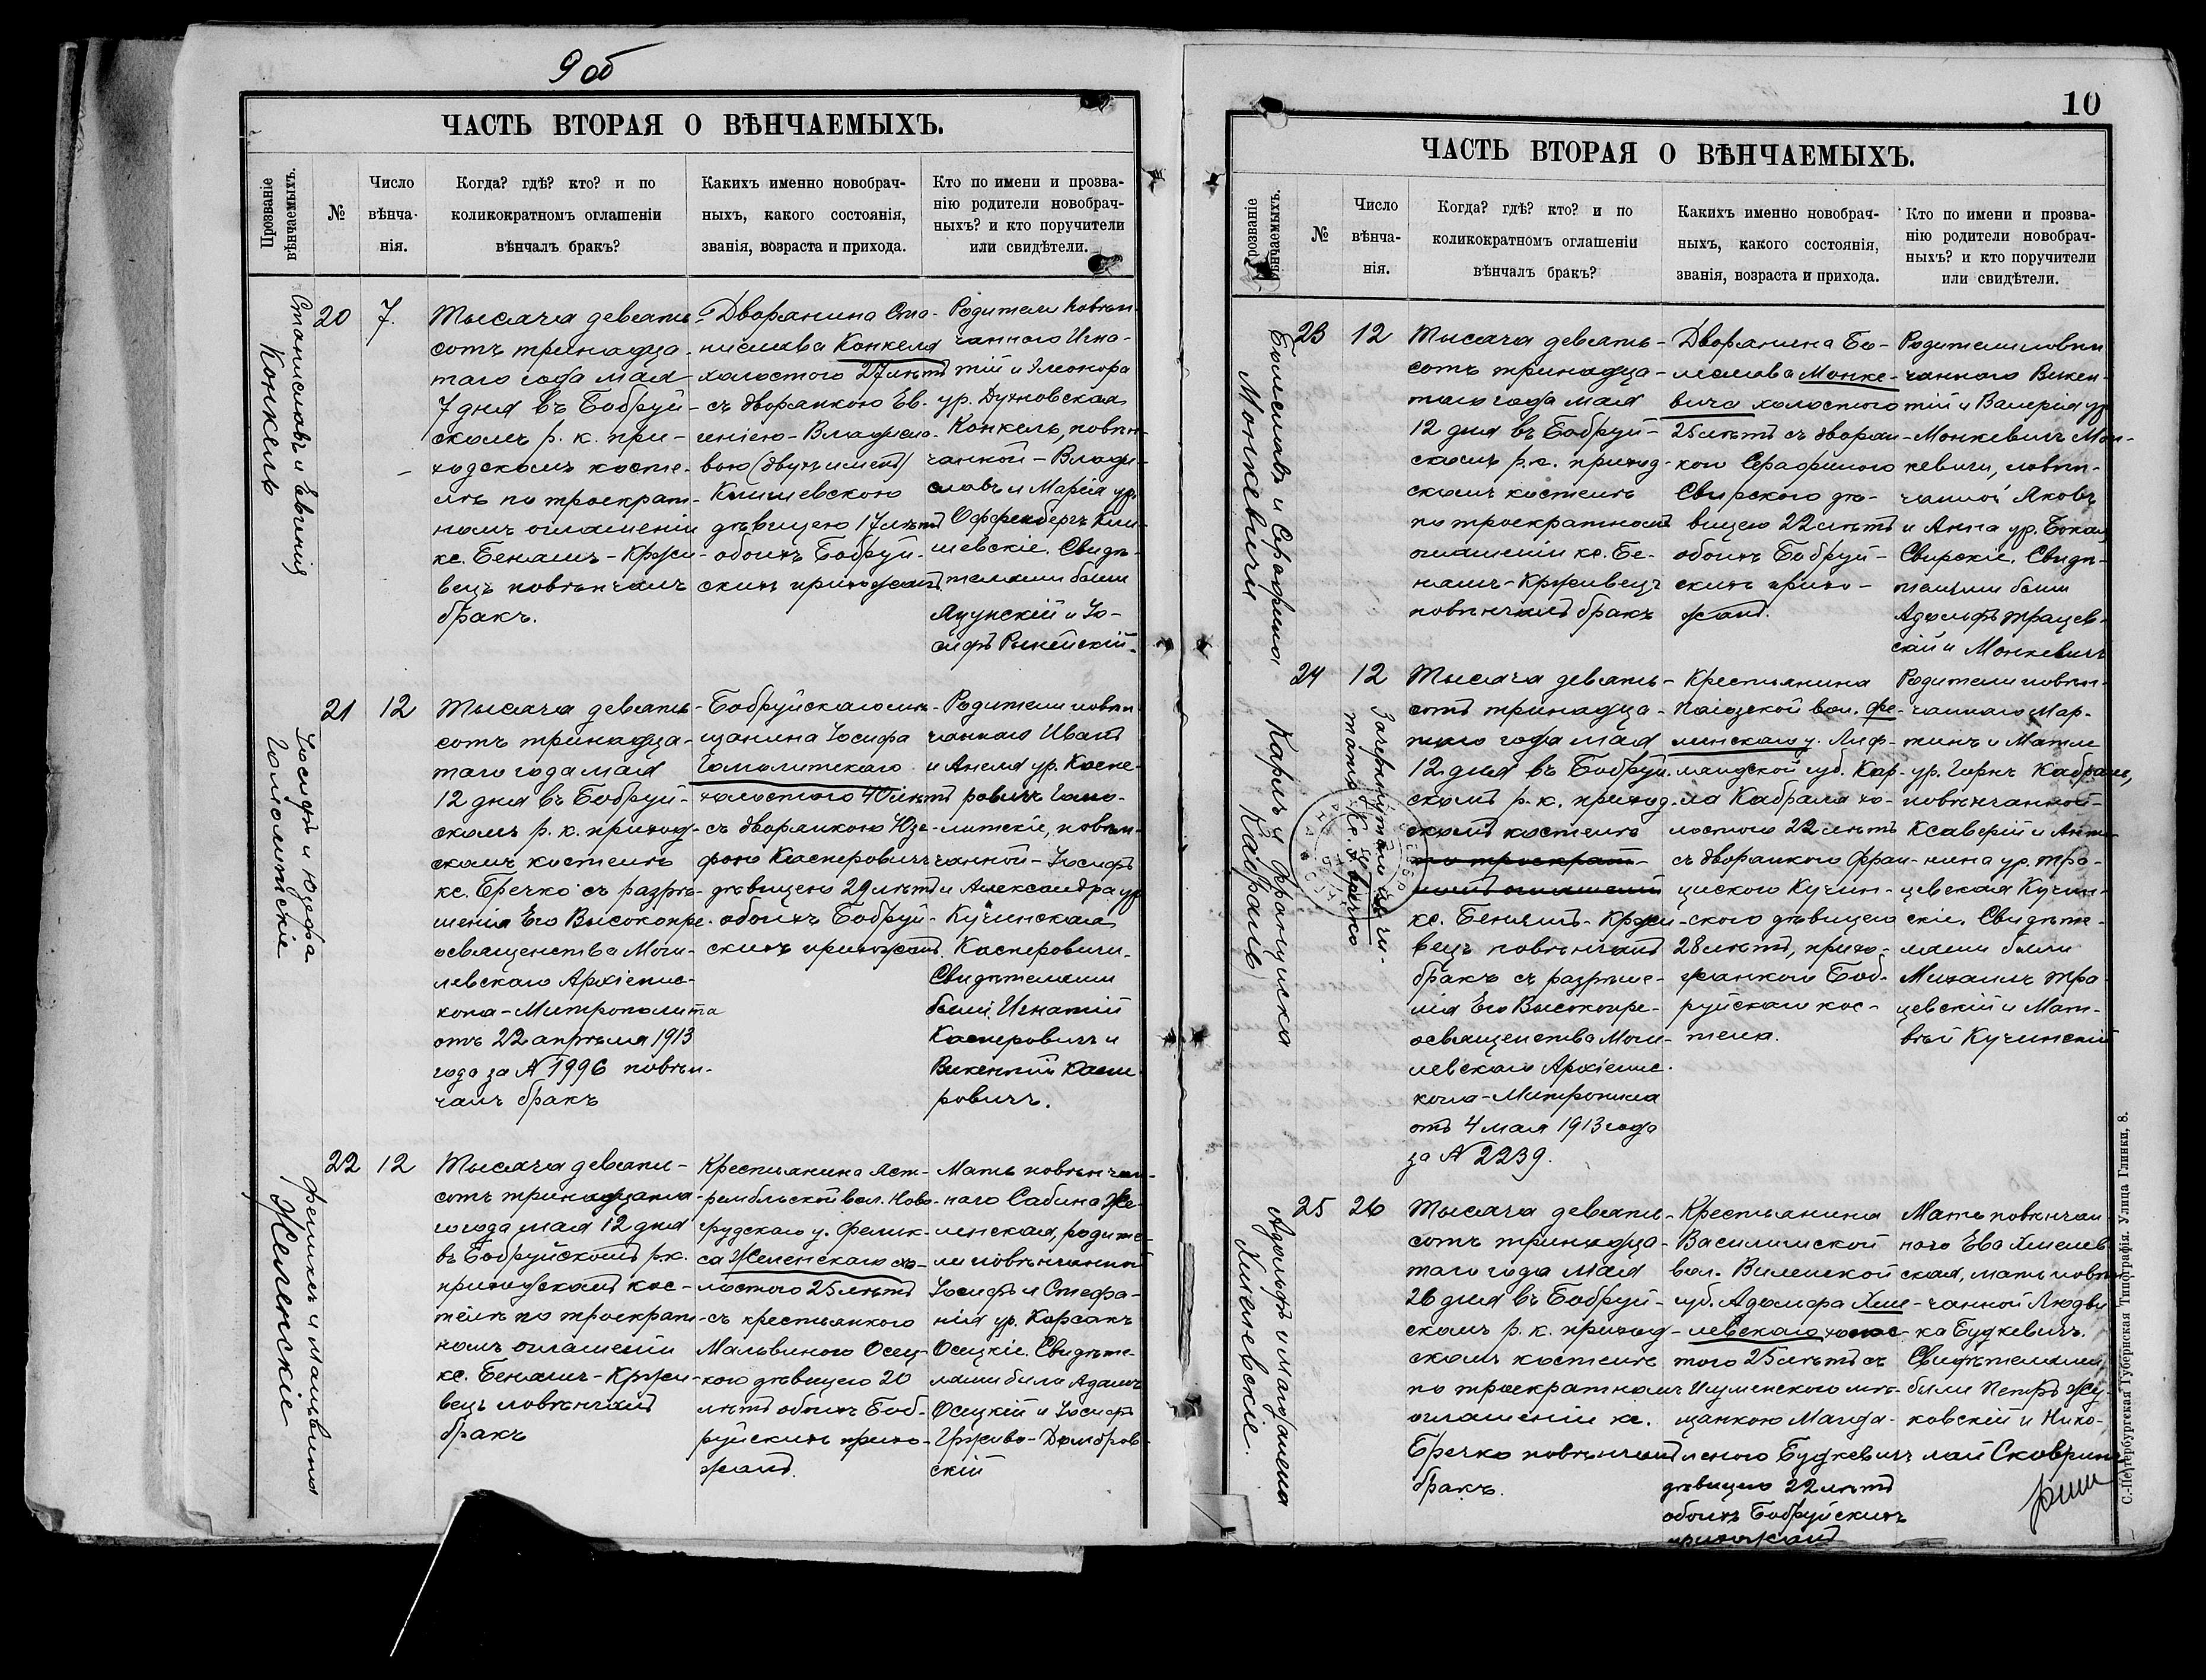 9 об
ЧАСТЬ ВТОРАЯ О ВѢНЧАЕМЫХЪ.
Прозваніе
вѣнчаемыхъ.
№
Число
вѣнча-
нія.
Когда? гдѣ? кто? и по
коликократномъ оглашеніи
вѣнчалъ бракъ?
Каких именно новобрач-
ныхъ, какого состоянія,
званія, возраста и прихода.
Кто по имени и прозва-
нію родители новобрач-
ныхъ? и кто поручители
или свидѣтели.
Станиславъ и Евгенія
Конкель
20
7.
Тысяча девять-
сотъ тринадца-
таго года мая
7 дня въ Бобруй-
скомъ р. к. при-
ходскомъ косте-
лѣ по троекрат-
номъ оглашеніи
кс. Беньямъ-Кржи-
вецъ повѣнчалъ
бракъ.
Дворянина Ста-
нислава Конкеля
холостого 27 лѣтъ
съ дворянкою Ев-
геніею-Владисла-
вою (двухъ именъ)
дѣвицею 17 лѣтъ
обоихъ Бобруй-
скихъ прихожанъ.
Родители повѣн-
чаннаго Игна-
тій и Элеонора
ур. Духновская
Конкель, повѣн-
чанной - Влади-
славъ и Марія ур.
Оффенбергъ
Свидѣ-
телями были
Яцунскій и Іо-
сифъ
21
12
Іосифъ и Юзефа
Гомолитскіе
Тысяча девять-
сотъ тринадца-
таго года мая
12 дня въ Бобруй-
скомъ р. к. приход-
скомъ костелѣ
кс. Гречко съ разрѣ-
шенія Его Высокопре-
освященства Моги-
левскаго Архіепис-
копа-Митрополита
отъ 22 апрѣля 1913
года за № 1996 повѣн-
чалъ бракъ
Бобруйскаго мѣ-
щанина Іосифа
Гомолитскаго
холостого 40 лѣтъ
съ дворянкою Юзе-
фою Касперовичъ
дѣвицею 29 лѣтъ
обоихъ Бобруй-
скихъ прихожанъ.
Родители повѣн-
чаннаго Иванъ
и Анеля ур. Каспе-
ровичъ Гомо-
литскіе, повѣн-
чанной - Іосифъ
и Александра ур.
Кучинская
Касперовичи.
Свидѣтелями
были Игнатій
Касперовичъ и
Викентій Каспе-
ровичъ.
22
12
Феликсъ и Мальвина
Желенскіе
Тысяча девять-
сотъ тринадцата-
го года мая 12 дня
въ Бобруйскомъ р.к.
приходскомъ кос-
телѣ по троекрат-
номъ оглашеніи
кс. Беньямъ-Кржи-
вецъ повѣнчалъ
бракъ
Крестьянина
вол. Ново-
грудскаго у. Фелик-
са Желенскаго хо-
лостого 25 лѣтъ
съ крестьянкою
Мальвиною Осец-
кою дѣвицею 20
лѣтъ обоихъ Боб-
руйскихъ прихо-
жанъ.
Мать повѣнчан-
наго Сабина Же-
ленская, родите-
ли повѣнчанной
Іосифъ и Стефа-
нія ур. Корсакъ
Осецкіе. Свидѣте-
лями были Адамъ
Осецкій и Іосифъ
Грживо-Домбров-
скій
10
ЧАСТЬ ВТОРАЯ О ВѢНЧАЕМЫХЪ.
Прозваніе
вѣнчаемыхъ.
№
Число
вѣнча-
нія.
Когда? гдѣ? кто? и по
коликократномъ оглашеніи
вѣнчалъ бракъ?
Какихъ именно новобрач-
ныхъ, какого состоянія,
званія, возраста и прихода.
Кто по имени и прозва-
нію родители новобрач-
ныхъ? и кто поручители
или свидѣтели.
23
12
Болеславъ и Серафина
Монкевичи
Тысяча девять-
сотъ тринадца-
таго года мая
12 дня въ Бобруй-
скомъ р.к. приход-
скомъ костелѣ
по троекратномъ
оглашеніи кс. Бе-
ньямъ-Крживецъ
повѣнчалъ бракъ
Дворянина Бо-
леслава Монке-
вича холостого
25 лѣтъ съ дворян-
кою Серафиною
Свирскою дѣ-
вицею 22 лѣтъ
обоихъ Бобруй-
скихъ прихо-
жанъ.
Родители повѣн-
чаннаго Викен-
тій и Валерія ур.
Монкевичъ Мон-
кевичи, повѣн-
чанной Яковъ
и Анна ур.
Свирскіе. Свидѣ-
телями были
Адольфъ Трацев-
скій и Монкевичъ
24
12
Карлъ и Франциска
Кабраль
Зачеркнутаго не чи-
тать Кс. Гречко
Тысяча девять-
сотъ тринадца-
таго года мая
12 дня въ Бобруй-
скомъ р. к. приход-
скомъ костелѣ
по троекрат-
номъ оглашеніи
кс. Беньямъ-Кржи-
вецъ повѣнчалъ
бракъ съ разрѣше-
нія Его Высокопре-
освященства Моги-
левскаго Архіепис-
копа-Митрополита
отъ 4 мая 1913 года
за № 2239.
Крестьянина
вол. Фе-
линскаго у. Лиф-
ляндской губ. Кар-
ла Кабраля хо-
лостого 22 лѣтъ
съ дворянкою Фран-
цискою Кучин-
скою дѣвицею
28 лѣтъ, прихо-
жанкою Боб-
руйскаго кос-
тела.
Родители повѣн-
чаннаго Мар-
тинъ и
ур. Горнъ Кабраль,
повѣнчанной-
Ксаверій и Анто-
нина ур. Тра-
цевская Кучин-
скіе. Свидѣте-
лями были
Михаилъ Тра-
цевскій и Мат-
вѣй Кучинскій
25
26
Адольфъ и Магдалена
Хмелевскіе.
Тысяча девять-
сотъ тринадца-
таго года мая
26 дня въ Бобруй-
скомъ р. к. приход-
скомъ костелѣ
по троекратномъ
оглашеніи кс.
Гречко повѣнчалъ
бракъ.
Крестьянина
Василишской
вол. Виленской
губ. Адольфа Хме-
левскаго холос-
того 25 лѣтъ съ
Игуменскою мѣ-
щанкою Магда-
леною Будкевичъ
дѣвицею 22 лѣтъ
обоихъ Бобруйскихъ
прихожанъ
Мать повѣнчан-
наго Ева Хмелев-
ская, мать повѣн-
чанной Людви-
ка Будкевичъ.
Свидѣтелями
были Петръ Жу-
ковскій и Нико-
лай
С.-Петербургская Губернская Типографія. Улица Глинки, 8.